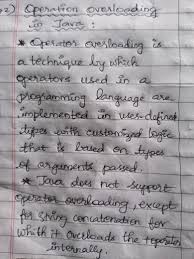 2) Operation overloading
in Java :
* Operator overloading is
a technique by which
operators used in a
programming language are
implemented in user-defined
types with customized logic
that is based on types
of arguments passed.
* Java does not support
operator overloading, except
for string concatenation for
which it overloads the + operator
internally.